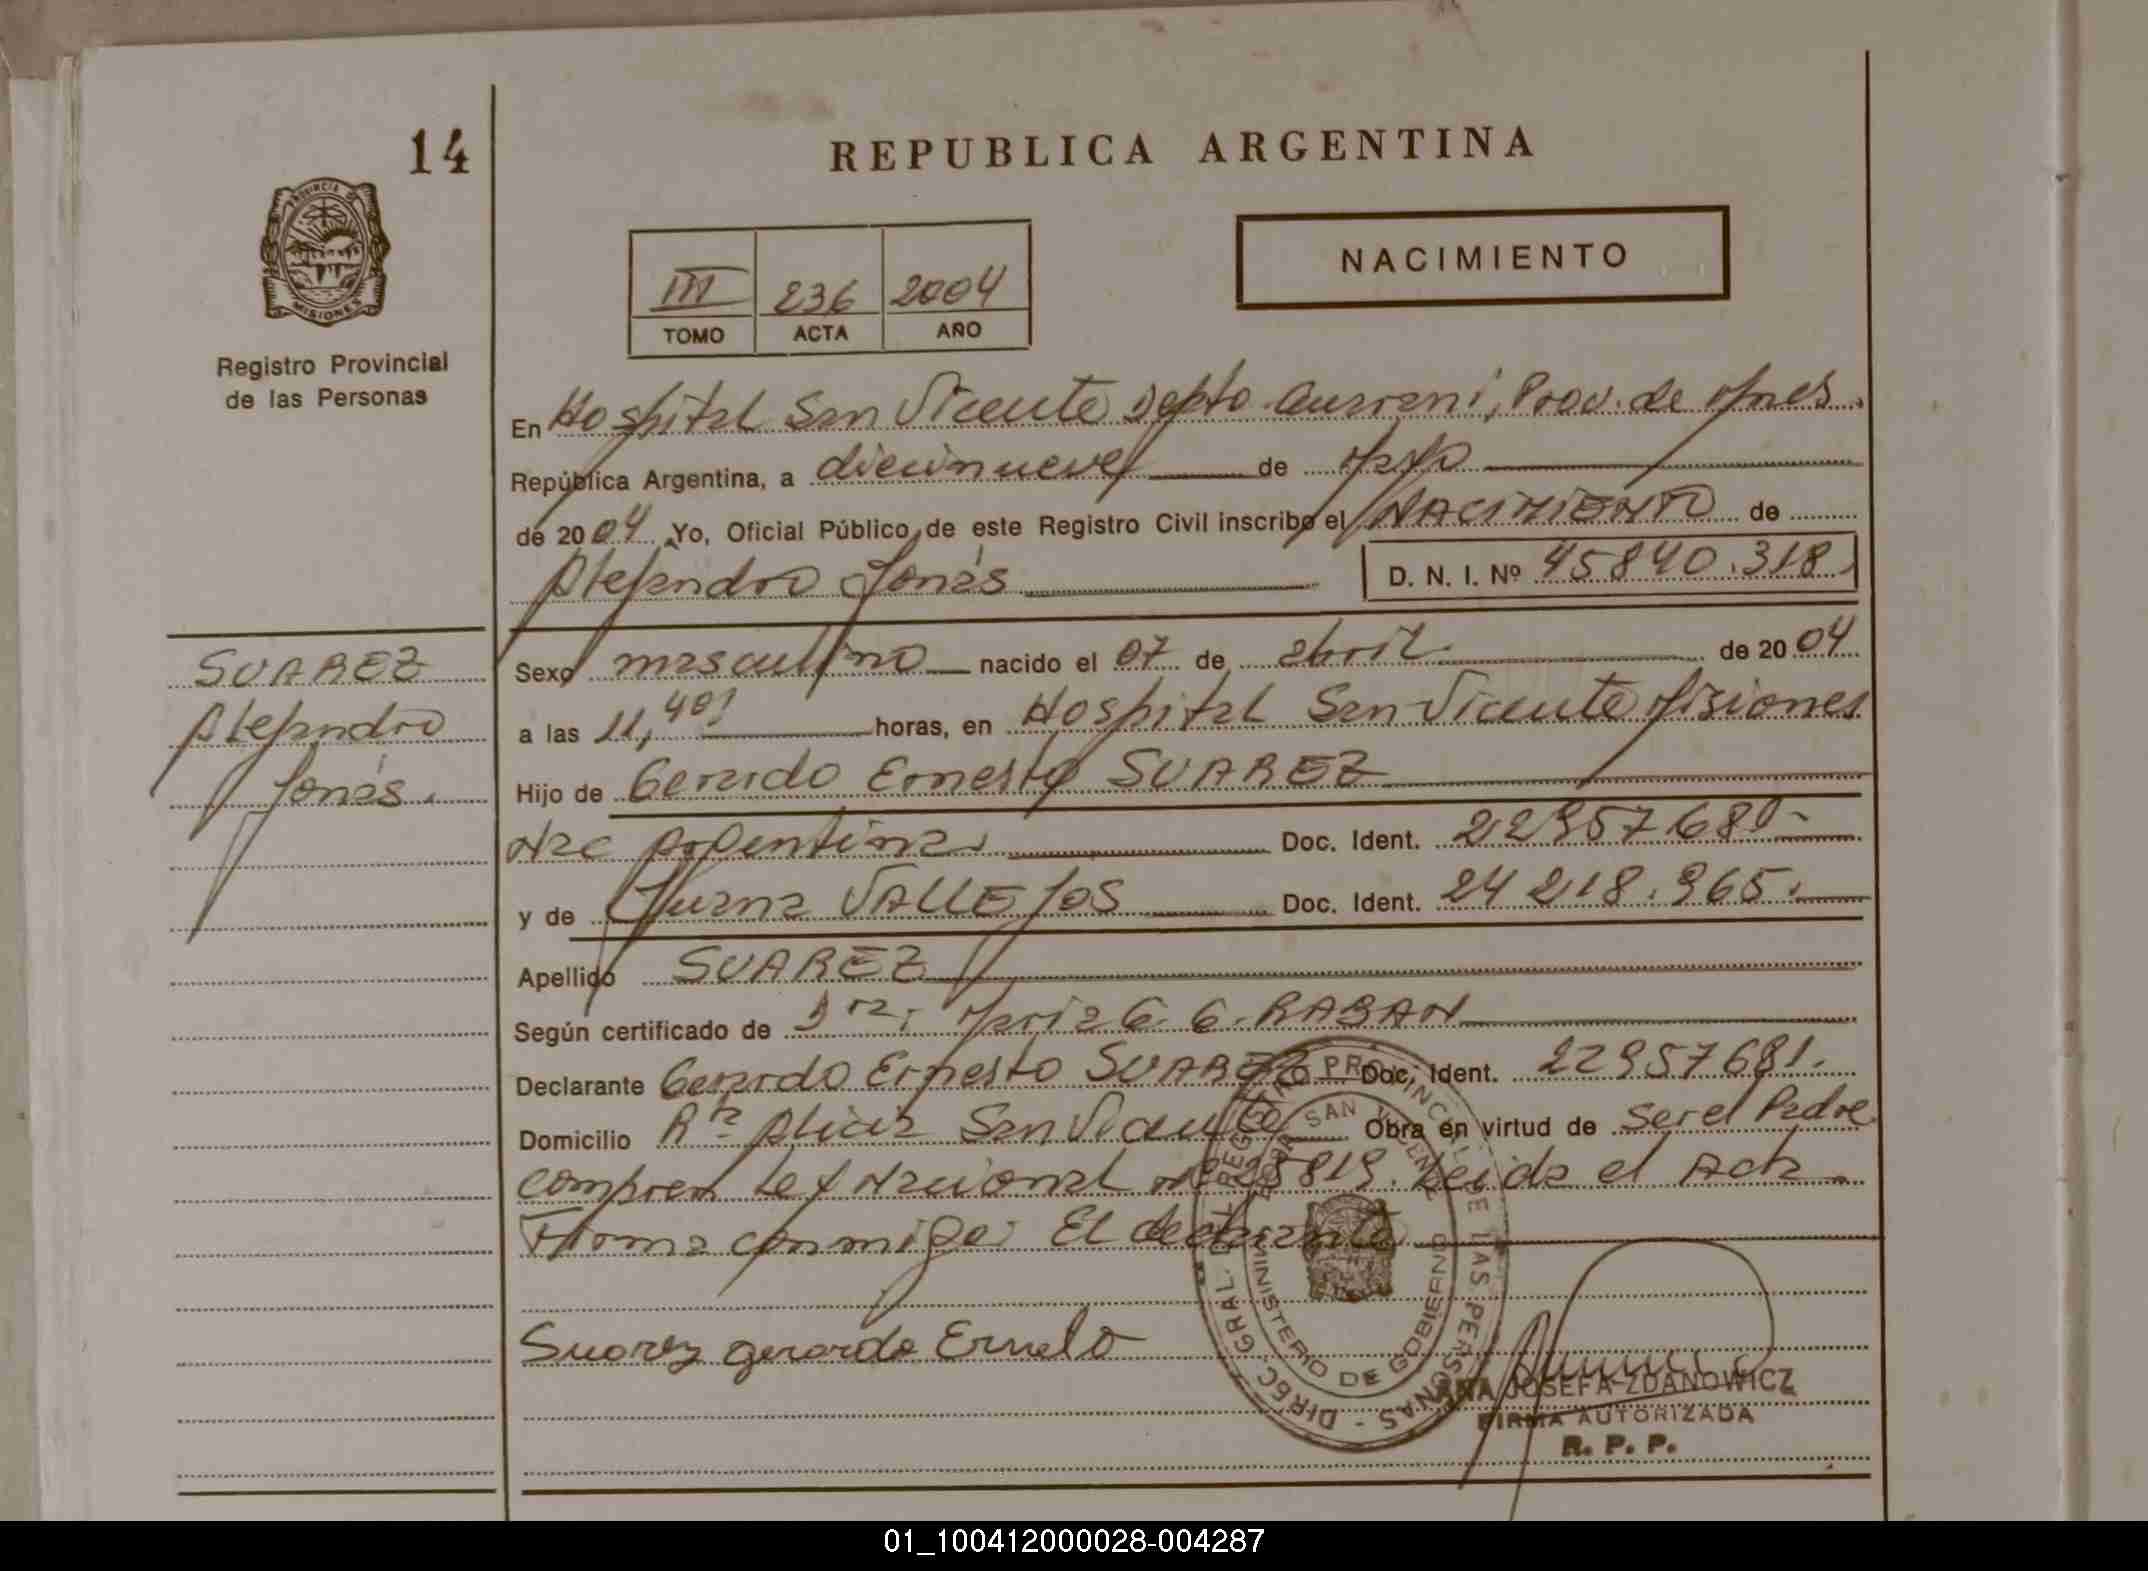 14
REPUBLICA ARGENTINA
PROVINCIA DE
MISIONES
Registro Provincial
de las Personas
NACIMIENTO
III 236 2004
TOMO ACTA AÑO
En Hospital San Vicente Depto. Guaraní, Prov. de Mnes.
República Argentina, a diecinueve de Mayo
de 2004 Yo, Oficial Público de este Registro Civil inscribo el NACIMIENTO de
Alejandro Jonás D. N. I. Nº 45840.318
SUAREZ
Alejandro
Jonás.
Sexo masculino nacido el 07 de abril de 2004
a las 11,40 horas, en Hospital San Vicente Misiones
Hijo de Gerardo Ernesto SUAREZ
Nac Argentina. Doc. Ident. 22957681-
y de Juana VALLEJOS Doc. Ident. 24218.965.
Apellido SUAREZ
Según certificado de Dra. María G. G. RABAN
Declarante Gerardo Ernesto SUAREZ Doc. Ident. 22957681.
Domicilio Rta Alicia San Vicente Obra en virtud de Ser el Padre
Ley Nacional nº 25819. Leida el Acta
Firma conmigo: El declarante
Suarez gerardo Ernesto
DIREC. GRAL. DEL REGISTRO PROVINCIAL DE LAS PERSONAS -
SAN VICENTE
MINISTERIO DE GOBIERNO
ANA JOSEFA ZDANOWICZ
FIRMA AUTORIZADA
R. P. P.
01_100412000028-004287